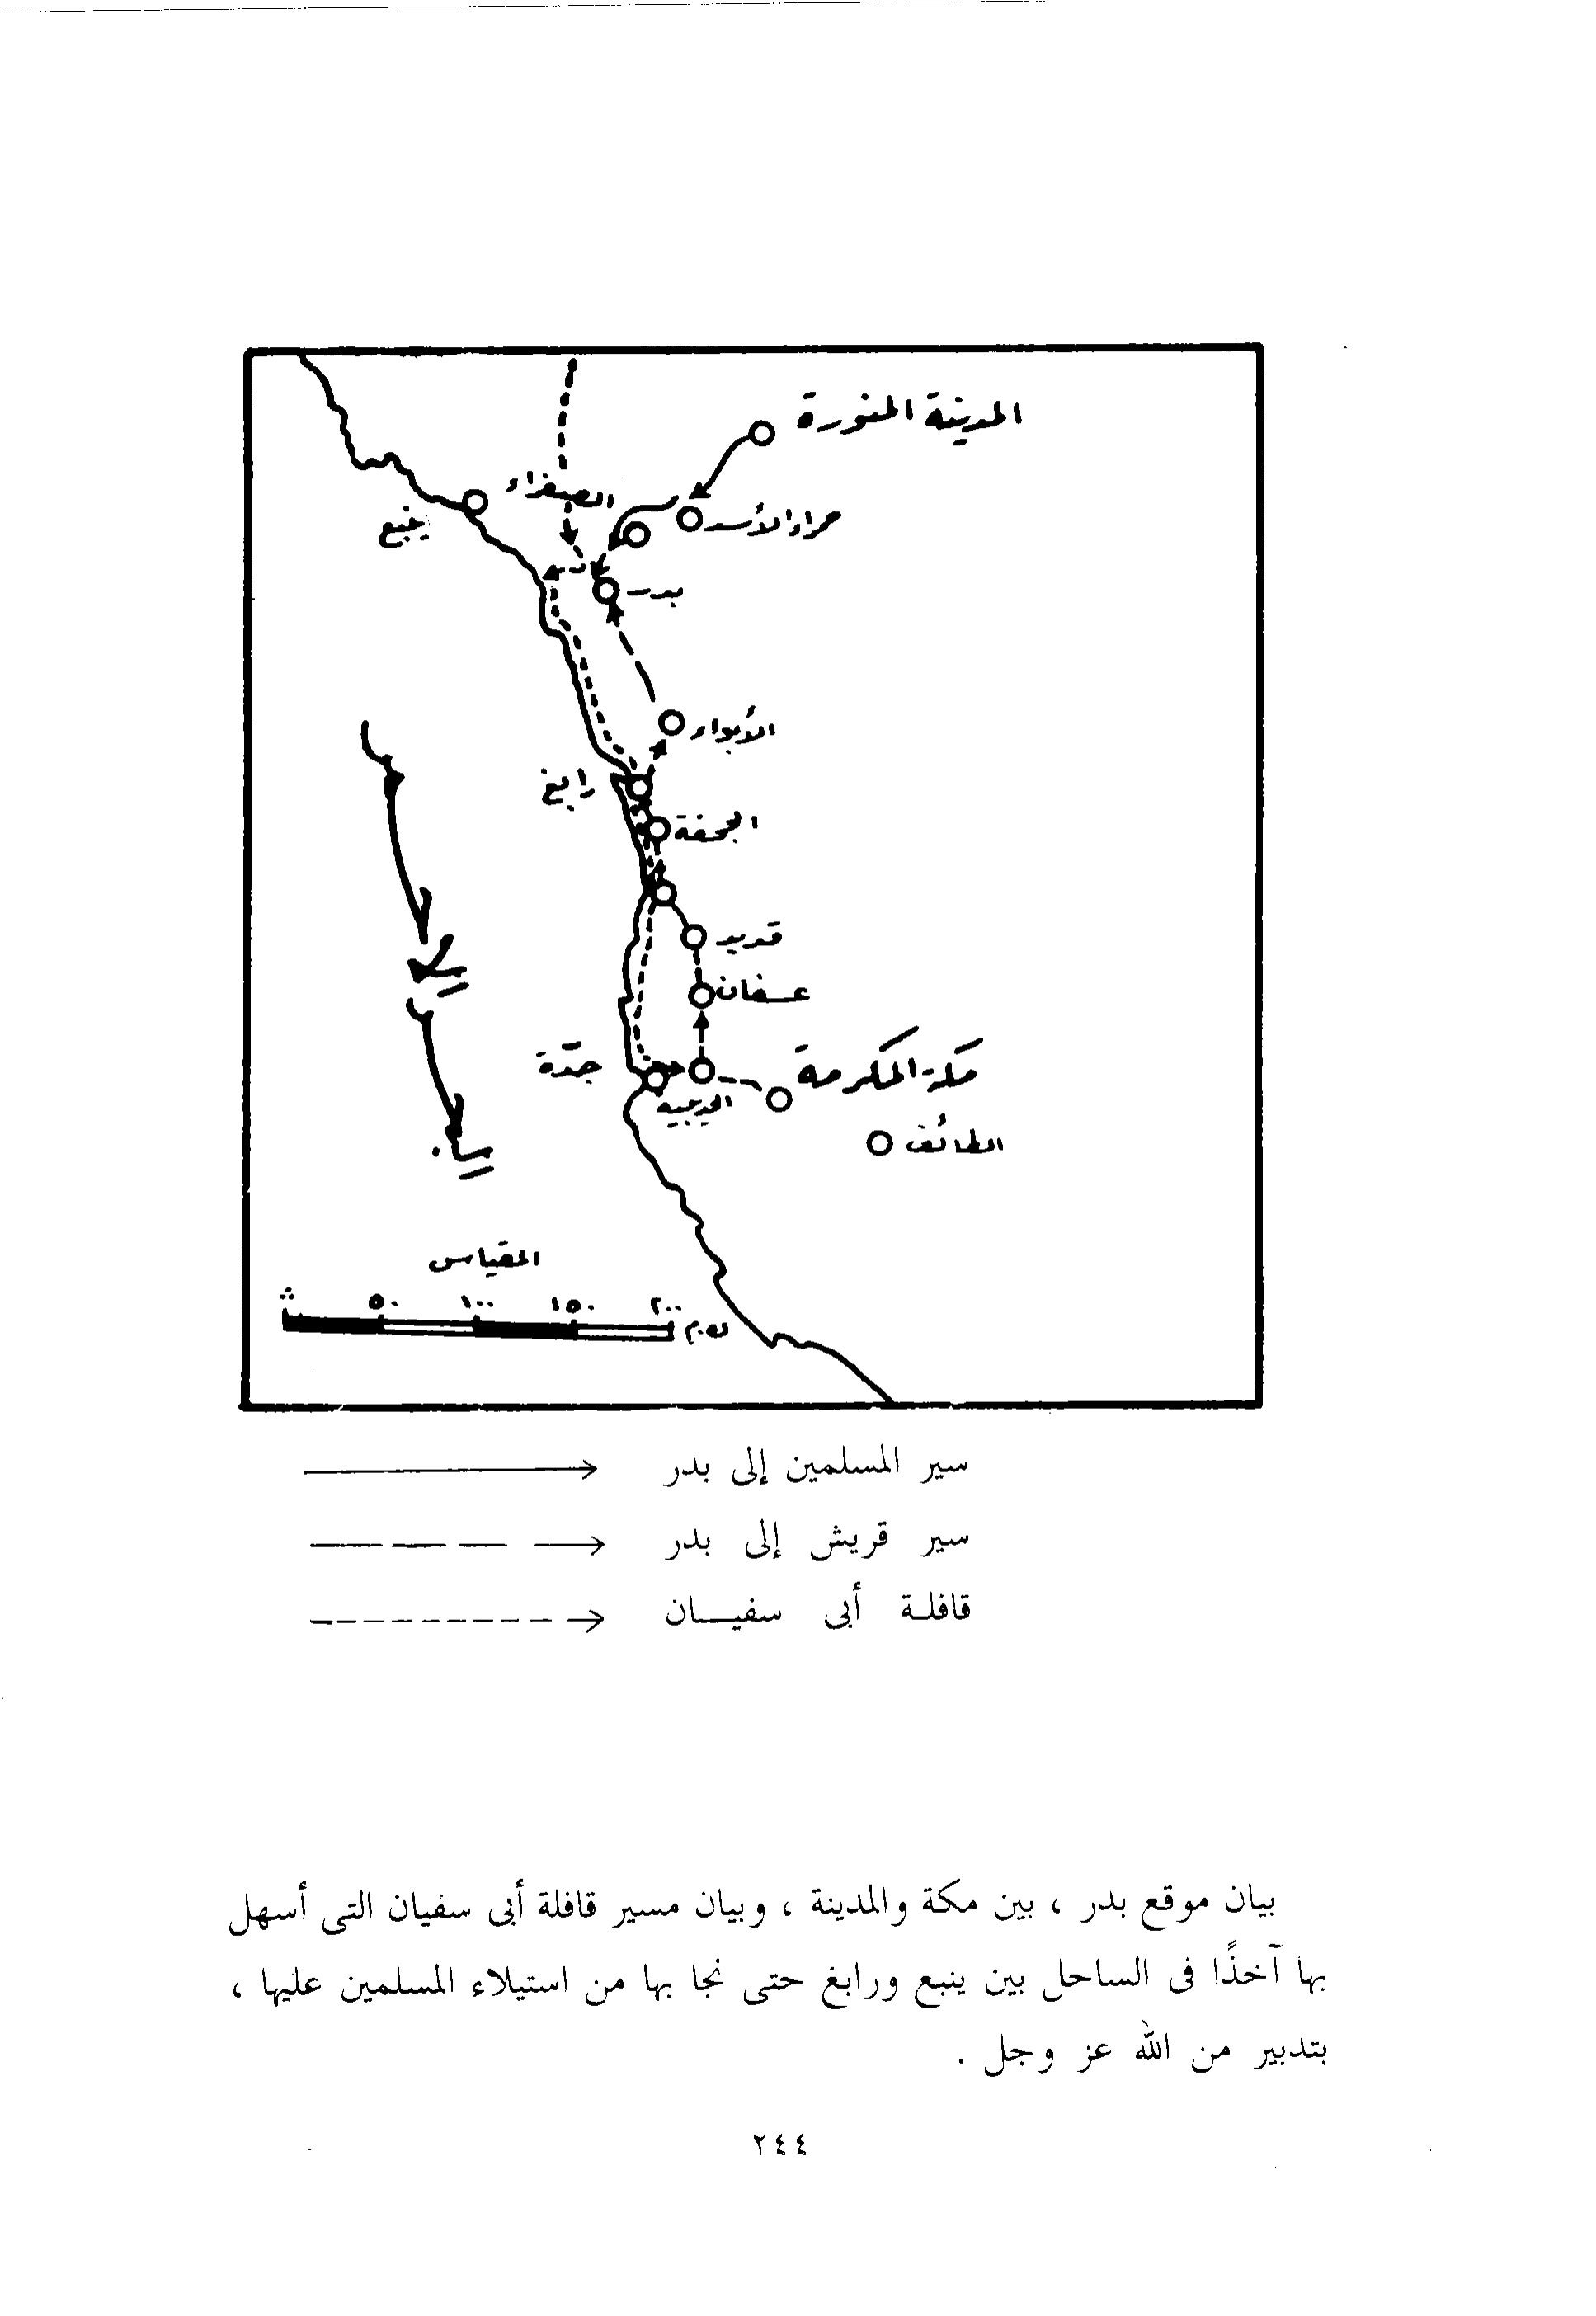 المدينة المنورة
الصفراء
حمراء الأسد
ينبع
بدر
الأبواء
رابغ
الجحفة
قديد
عسفان
مكة المكرمة
جدة
الحديبية
الطائف
البحر الأحمر
المقياس
٥٠ ١٠٠ ١٥٠ ٢٠٠ ك.م
سير المسلمين إلى بدر
سير قريش إلى بدر
قافلة أبى سفيان
بيان موقع بدر ، بين مكة والمدينة ، وبيان مسير قافلة أبى سفيان التى أسهل
بها آخذًا فى الساحل بين ينبع ورابغ حتى نجا بها من استيلاء المسلمين عليها ،
بتدبير من الله عز وجل .
٢٤٤